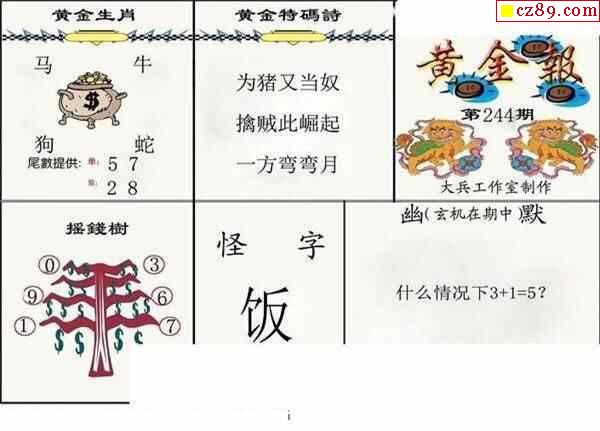 cz89.com
黄金生肖
马 牛
$
狗 蛇
尾數提供: 单: 5 7
2 8
黄金特碼詩
为猪又当奴
擒贼此崛起
一方弯弯月
黄金報
第244期
大兵工作室制作
摇錢樹
0 3
9 6
1 7
怪 字
饭
幽(玄机在期中)默
什么情况下3+1=5?
i